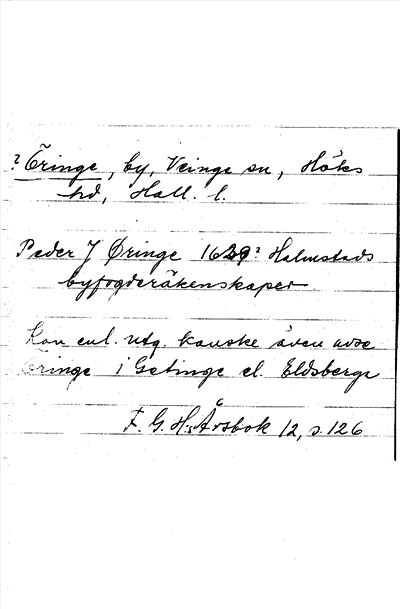 ? Öringe, by, Veinge sn, Höks
hd, Hall. l.
Peder J Øringe 1629? Halmstads
byfogderäkenskaper
Kan enl. utg. kanske även avse
Öringe i Getinge el. Eldsberga
F. G. H:s Årsbok 12, s. 126